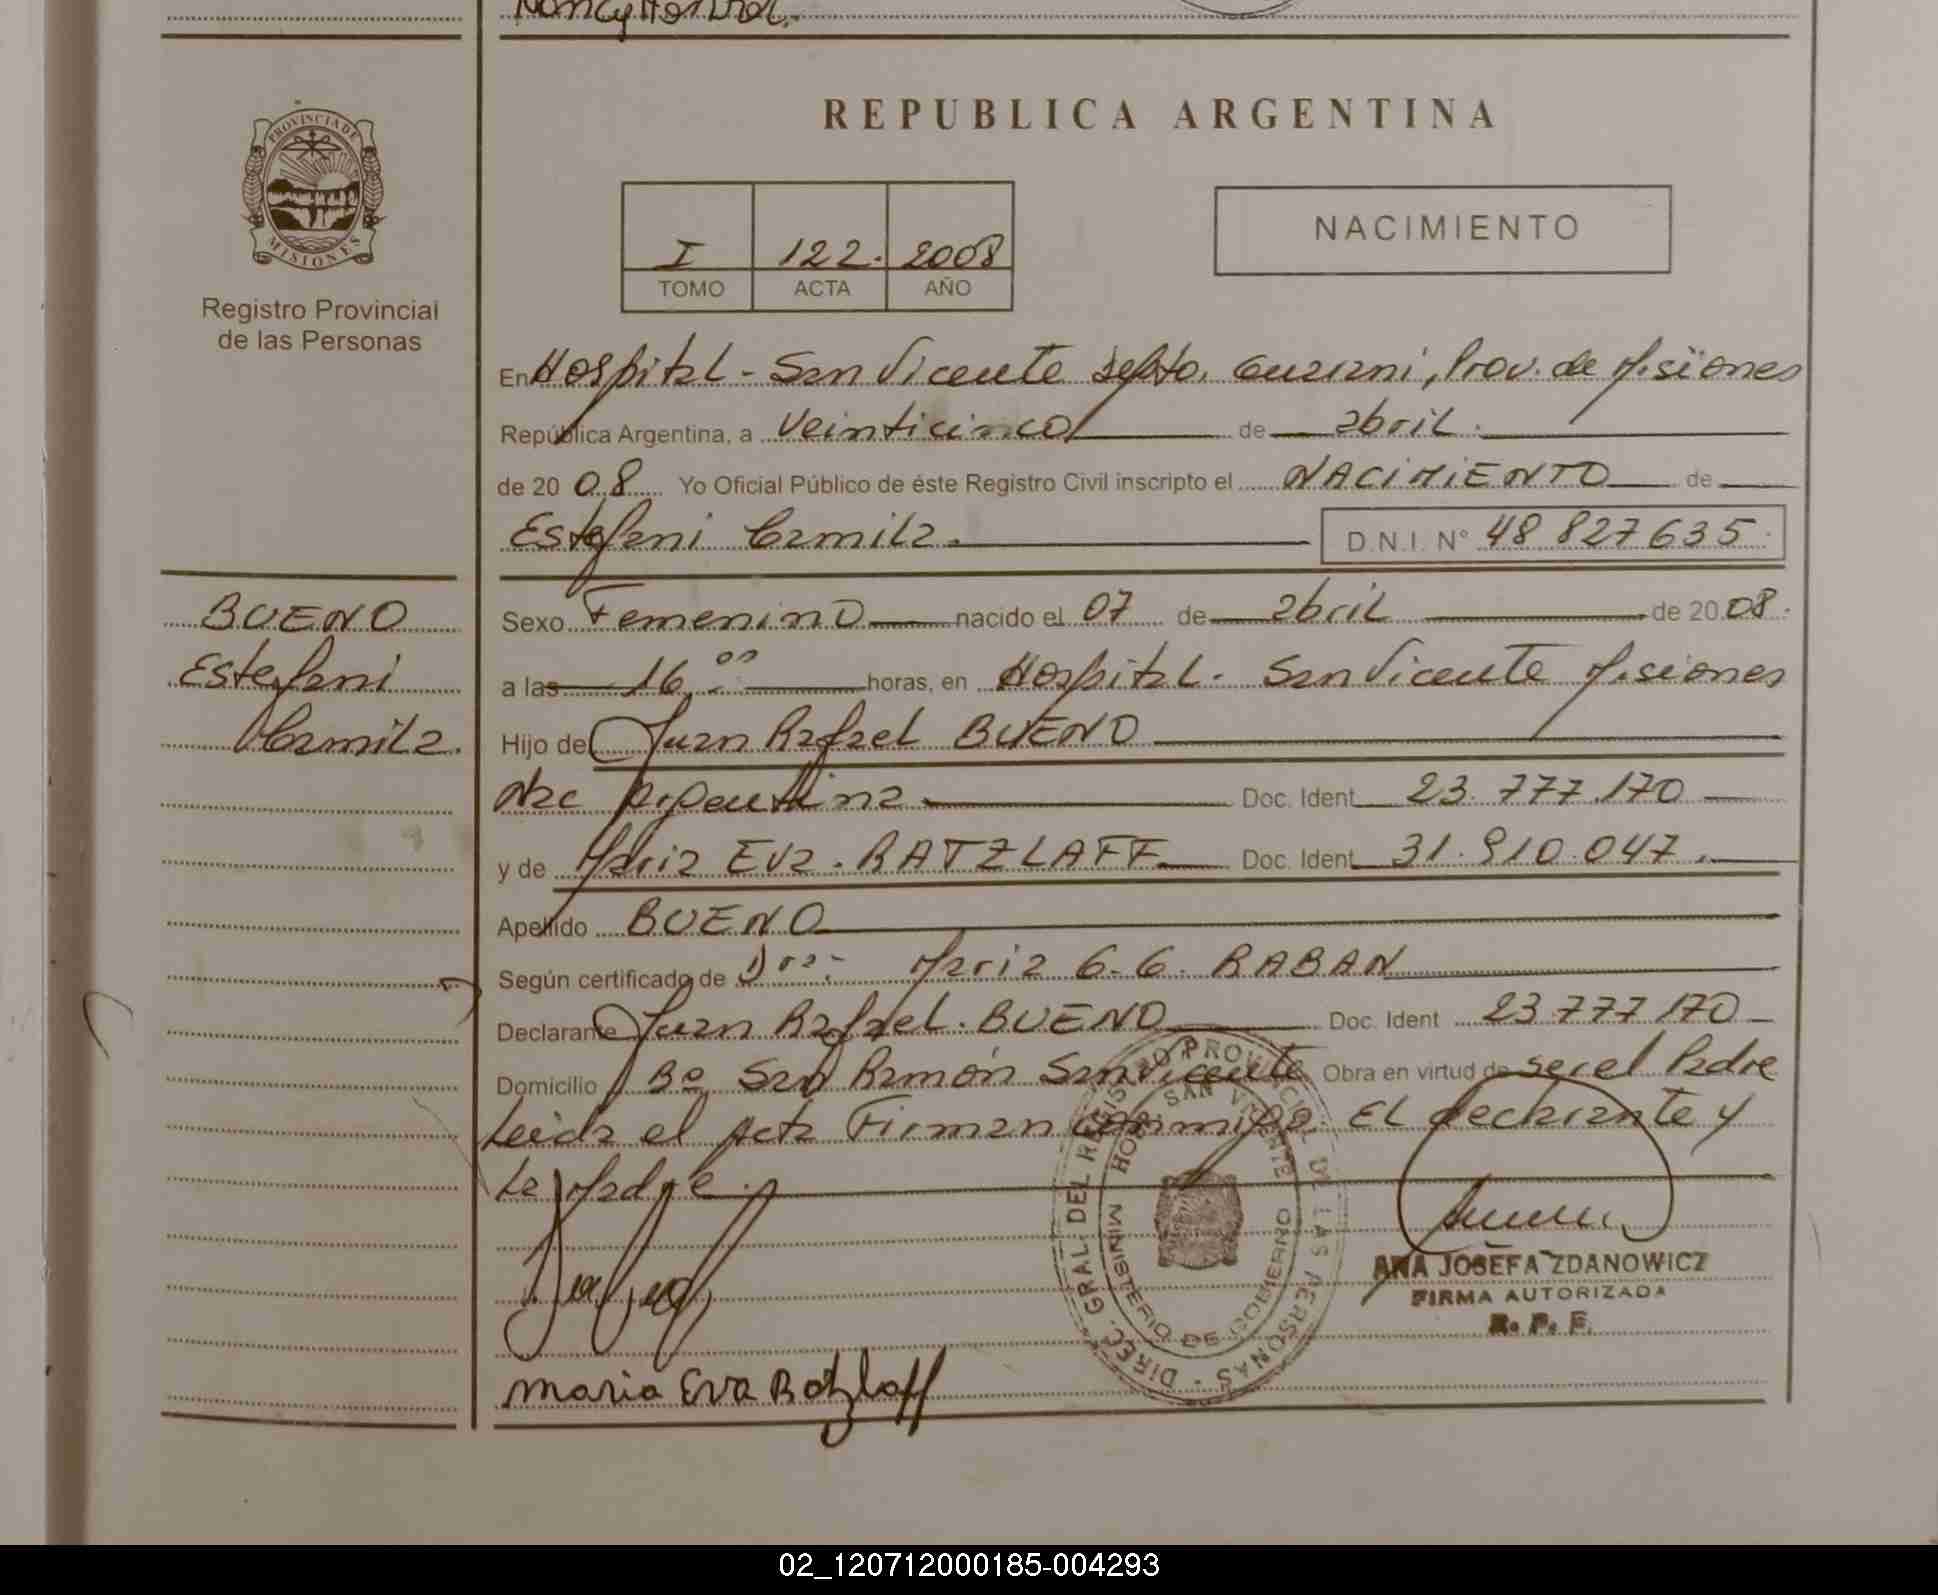 REPUBLICA ARGENTINA
PROVINCIA DE
MISIONES
Registro Provincial
de las Personas
I 122. 2008
TOMO ACTA AÑO
NACIMIENTO
En Hospital - San Vicente Depto. Guarani, Prov. de Misiones
República Argentina, a Veinticinco de abril.
de 20 08 Yo Oficial Público de éste Registro Civil inscripto el NACIMIENTO de
Estefani Camila. D.N.I. N° 48 827635.
BUENO
Estefani
Camila.
Sexo Femenino nacido el 07 de abril de 20 08.
a las 16,00 horas, en Hospital - San Vicente Misiones
Hijo de Juan Rafael BUENO
Nac Argentina Doc. Ident 23.777.170
y de Maria Eva. RATZLAFF Doc. Ident 31.910.047.
Apellido BUENO
Según certificado de Dra: Maria G. G. RABAN
Declarante Juan Rafael. BUENO Doc. Ident 23 777 170
Domicilio Bº San Ramón San Vicente Obra en virtud de ser el Padre
Leida el Acta Firman conmigo. El declarante y
La Madre.
DIREC. GRAL. DEL REGISTRO PROVINCIAL DE LAS PERSONAS
HOSP. SAN VICENTE
MINISTERIO DE GOBIERNO
ANA JOSEFA ZDANOWICZ
FIRMA AUTORIZADA
R. P. P.
Maria Eva Ratzlaff
02_120712000185-004293